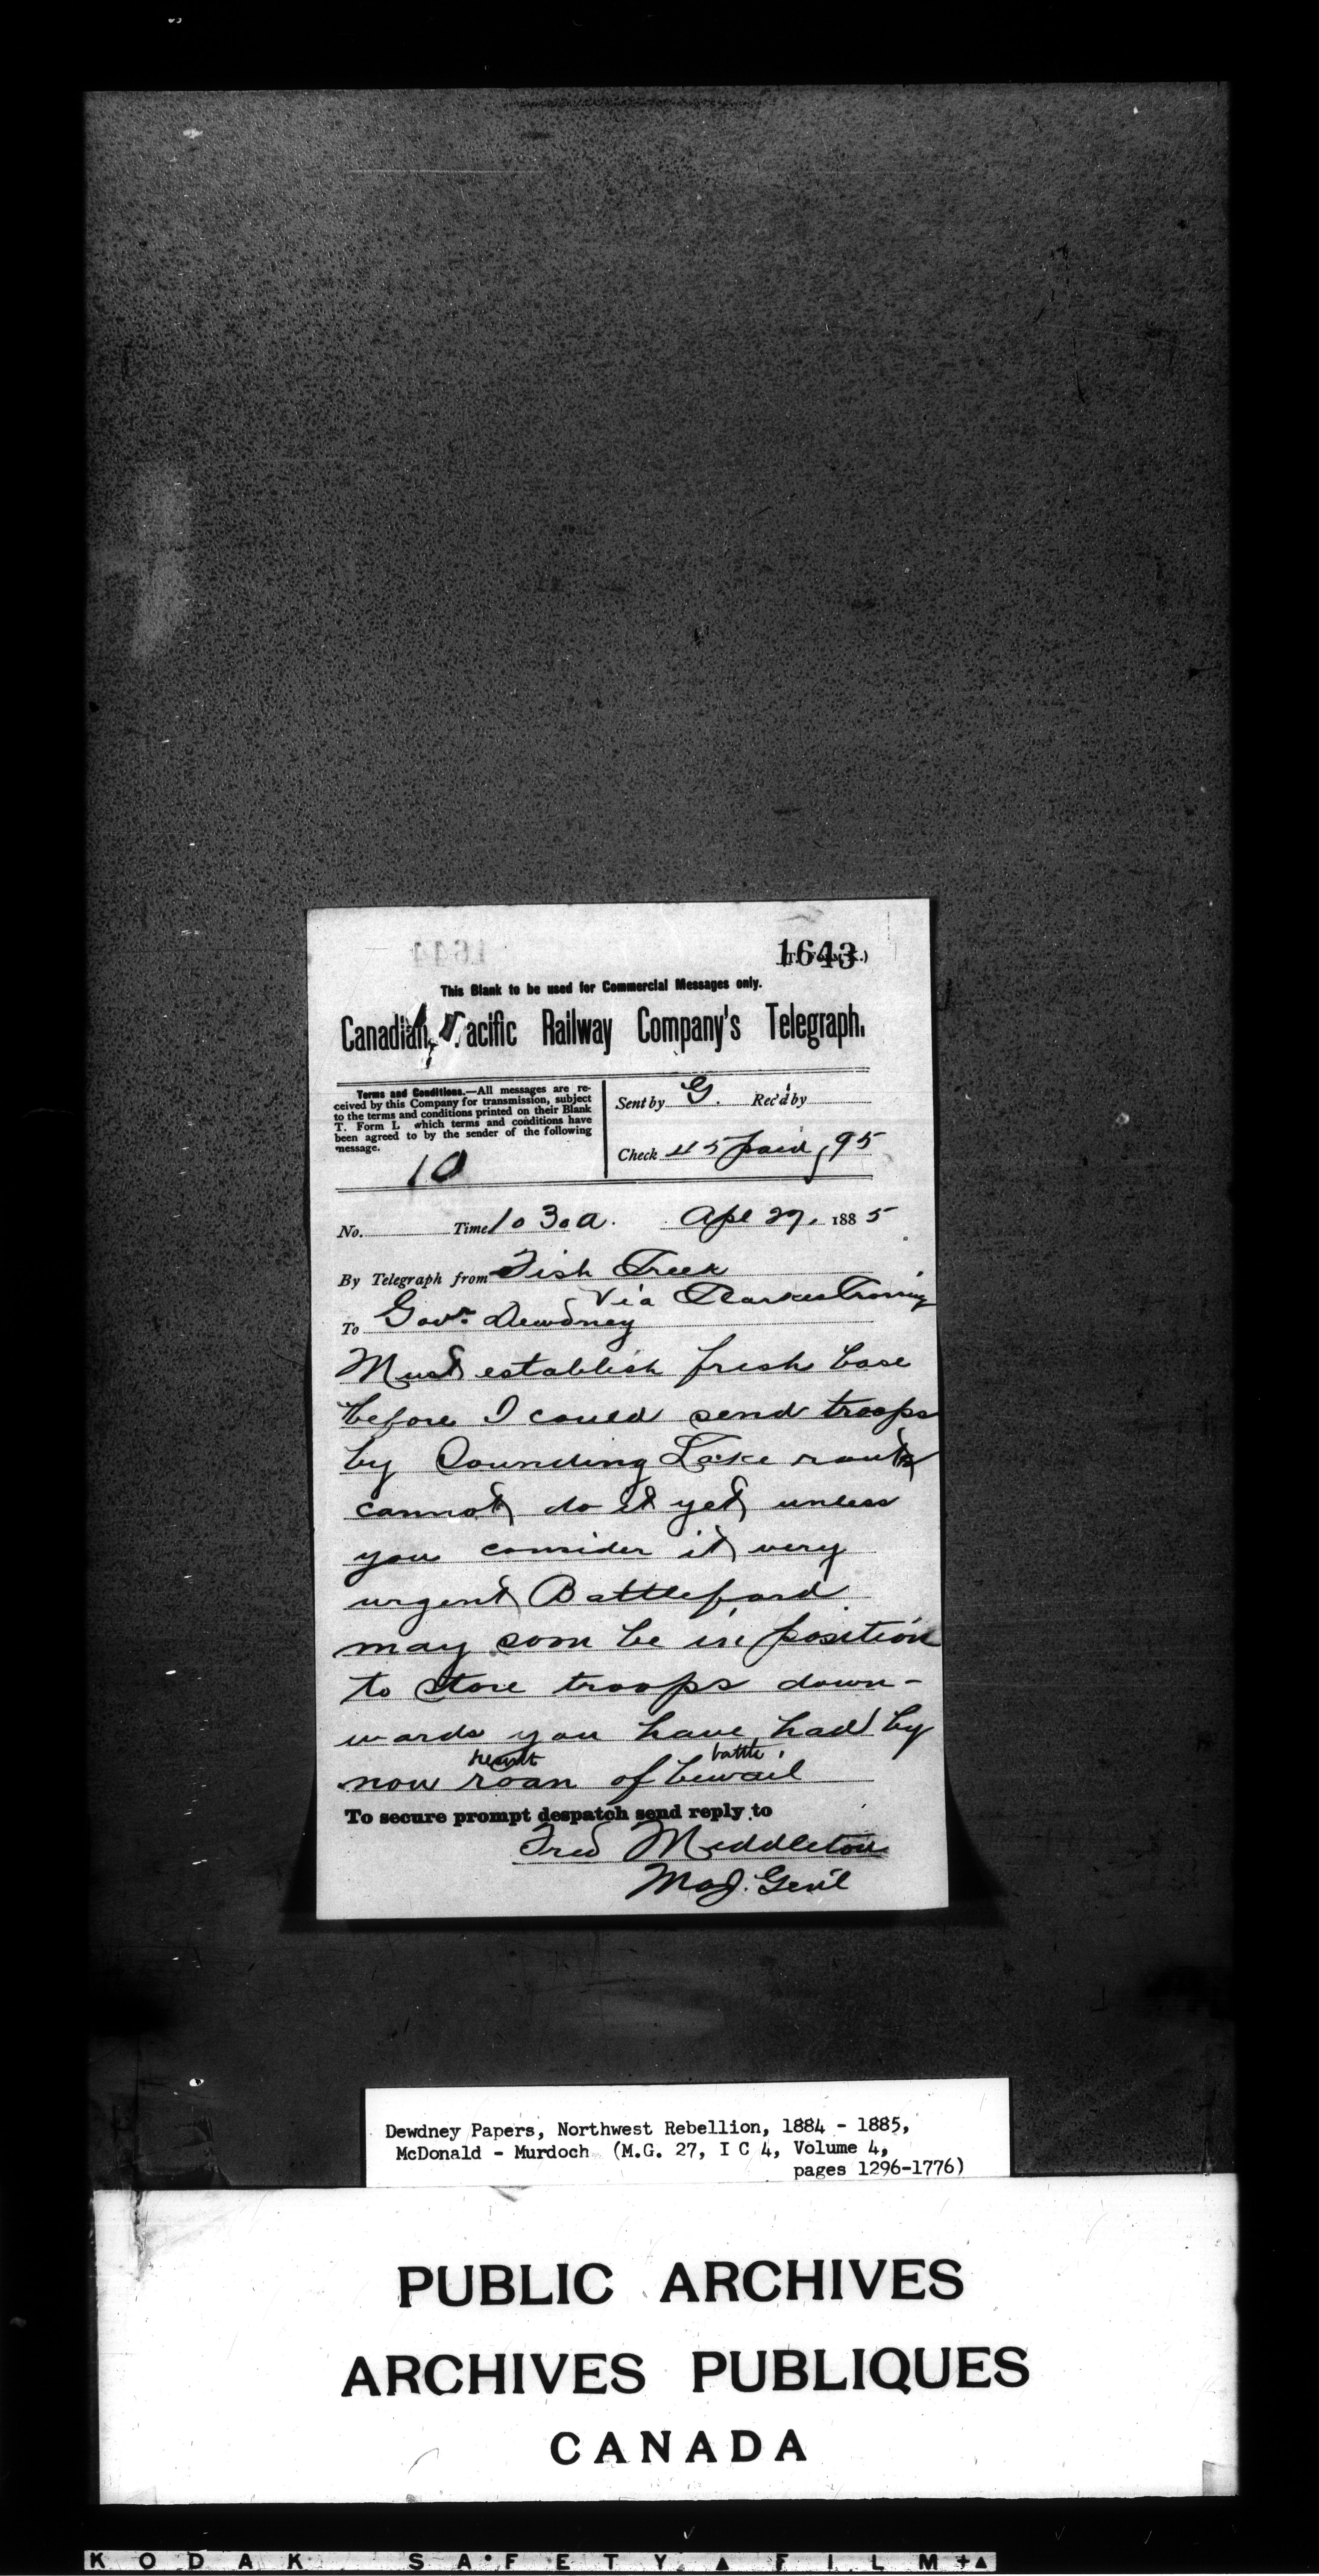 1643
This Blank to be used for Commercial Messages only.
Canadian Pacific Railway Company's Telegraph.
Terms and Conditions.—All messages are re-
ceived by this Company for transmission, subject
to the terms and conditions printed on their Blank
T. Form I. which terms and conditions have
been agreed to by the sender of the following
message.
10
Sent by G. Rec'd by
Check 45 paid, 95
No. Time 10 30 a. Apl 27, 1885
By Telegraph from Fish Creek
Via Clarkes Crossing
To Govr. Dewdney
Must establish fresh base
before I could send troops
by Sounding Lake route
cannot do it yet unless
you consider it very
urgent Battleford
may soon be in position
to store troops down-
wards you have had by
result battle
now roan of bewail
To secure prompt despatch send reply to
Fred Middleton
Maj. Gen'l
Dewdney Papers, Northwest Rebellion, 1884 - 1885,
McDonald - Murdoch (M.G. 27, I C 4, Volume 4,
pages 1296-1776)
PUBLIC ARCHIVES
ARCHIVES PUBLIQUES
CANADA
KODAK SAFETY FILM